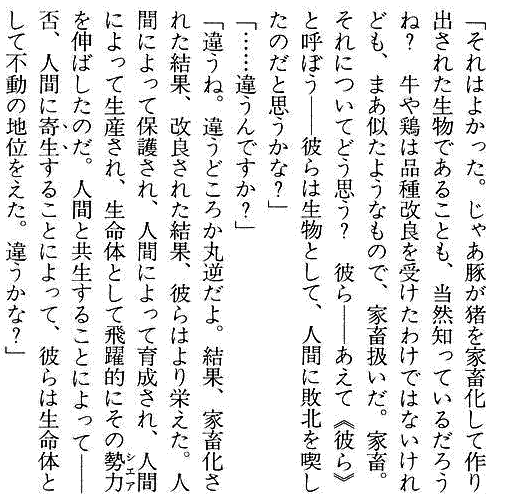 「それはよかった。じゃあ豚が猪を家畜化して作り
出された生物であることも、当然知っているだろう
ね？　牛や鶏は品種改良を受けたわけではないけれ
ども、まあ似たようなもので、家畜扱いだ。家畜。
それについてどう思う？　彼ら――あえて《彼ら》
と呼ぼう――彼らは生物として、人間に敗北を喫し
たのだと思うかな？」
「……違うんですか？」
「違うね。違うどころか丸逆だよ。結果、家畜化さ
れた結果、改良された結果、彼らはより栄えた。人
間によって保護され、人間によって育成され、人間
によって生産され、生命体として飛躍的にその勢力シェア
を伸ばしたのだ。人間と共生することによって――
否、人間に寄生することによって、彼らは生命体と
して不動の地位をえた。違うかな？」